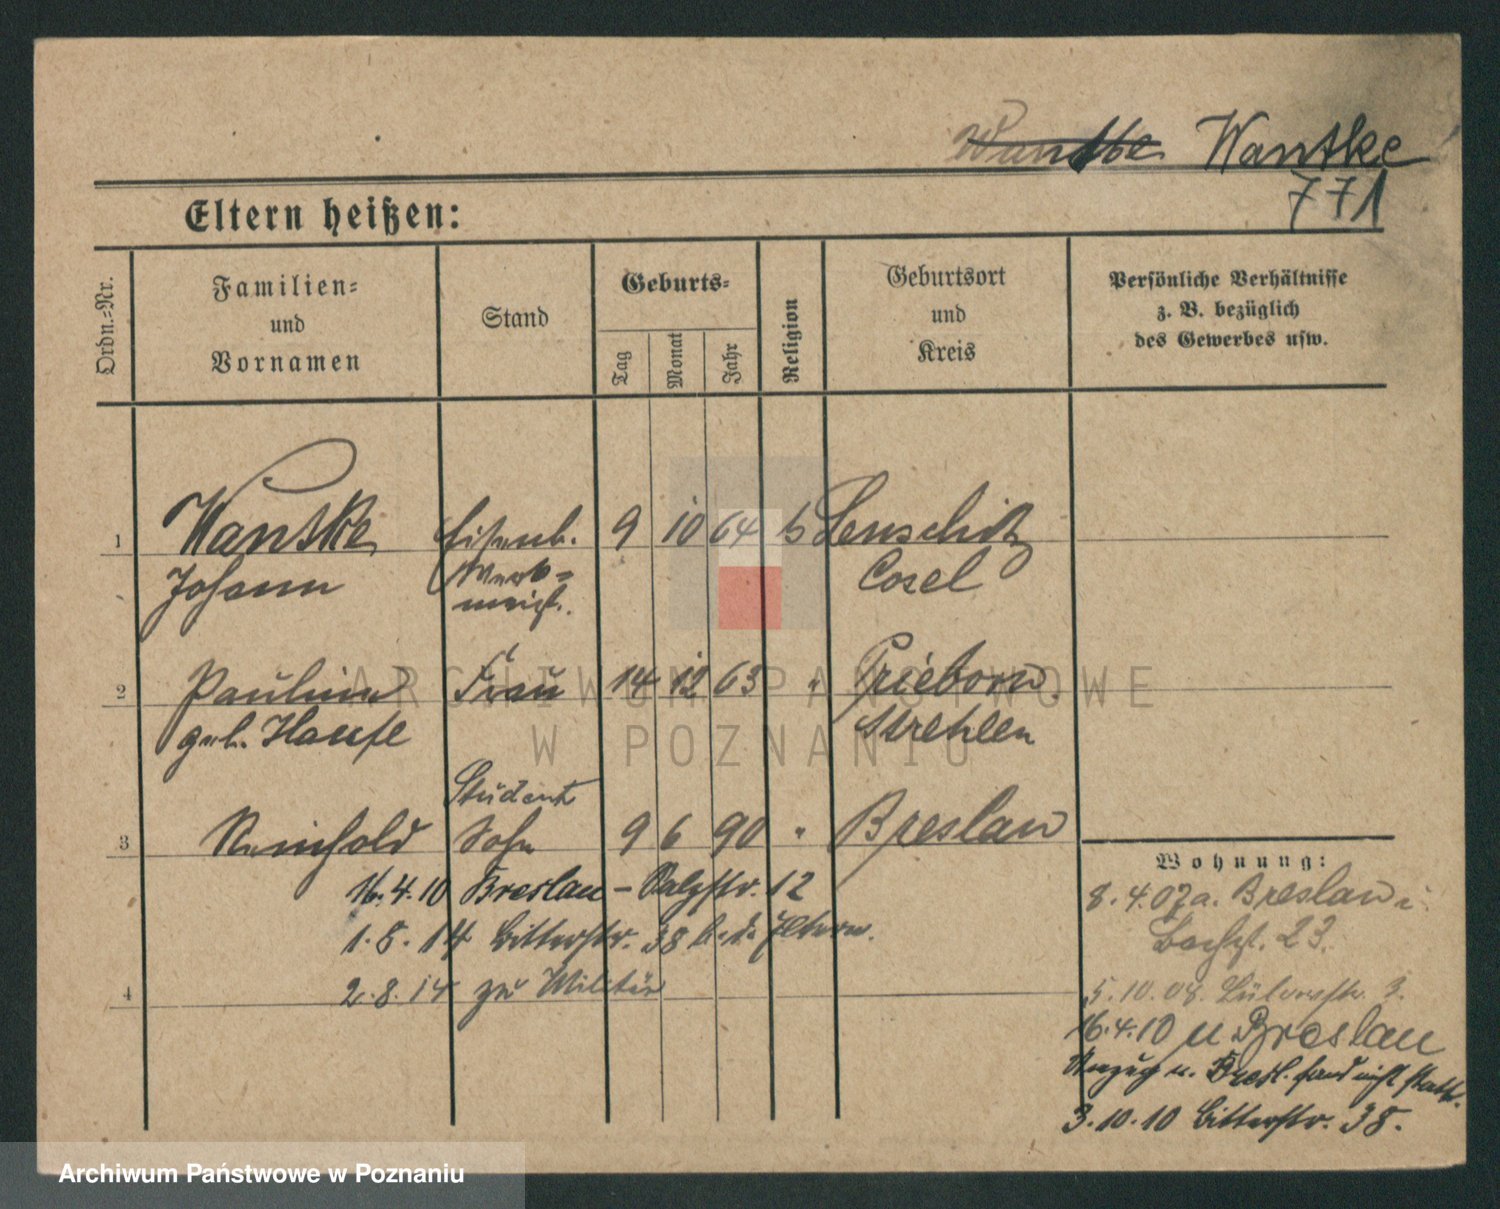 Wantke Wantke
771
Eltern heißen:
Ordn.-Nr.
Familien-
und
Vornamen
Stand
Geburts-
Tag
Monat
Jahr
Religion
Geburtsort
und
Kreis
Persönliche Verhältnisse
z. B. bezüglich
des Gewerbes usw.
1 Wantke Eisenb. 9 10 64 Lenschütz
Johann Werk- Cosel
meist.
2 Frau 14 12 63 " Prieborn
geb. Haufe Strehlen
Student
3 Reinhold Sohn 9 6 90 " Breslau
16.4.10 Breslau - Salzstr. 12
1.5.14 Bitterstr. 38 b. d. Eltern.
4 2.8.14 zu Militär
Wohnung:
8.4.07 a. Breslau
23.
5.10.08. 3.
16.4.10 n Breslau
Umzug n. Bresl. fand nicht statt.
3.10.10 Bitterstr. 38.
ARCHIWUM PAŃSTWOWE
W POZNANIU
Archiwum Państwowe w Poznaniu